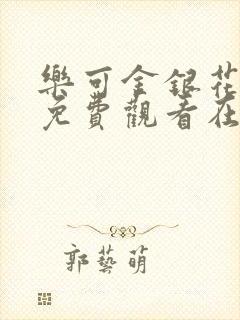 樂可金銀花
免費觀看在
郭藝萌